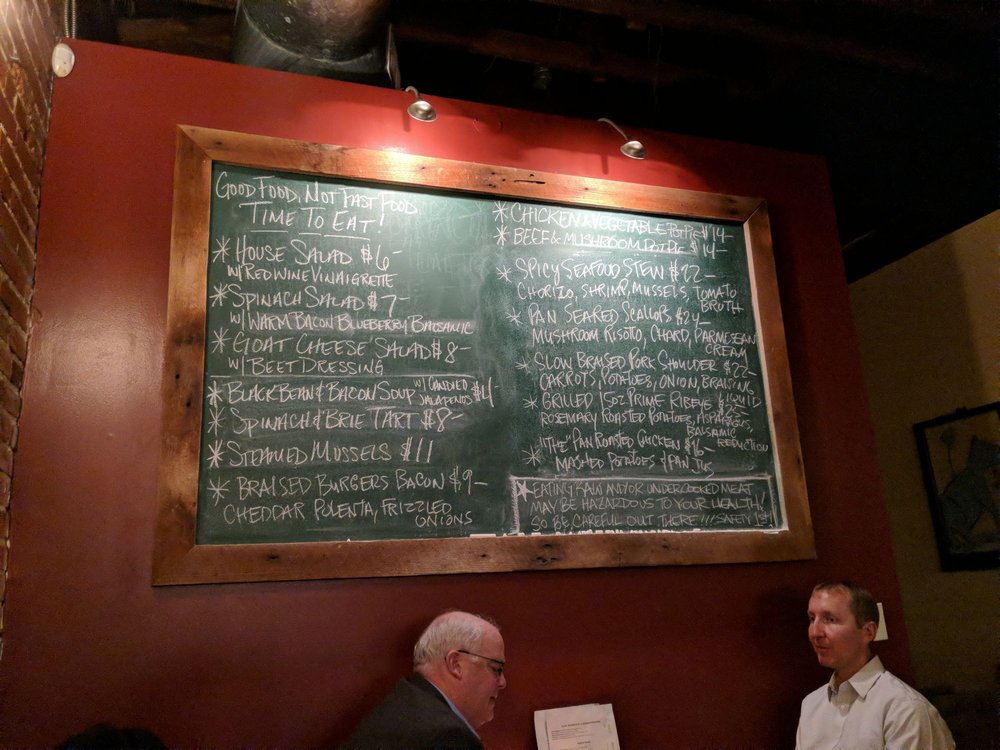 GOOD FOOD, NOT FAST FOOD
TIME TO EAT!
* HOUSE SALAD $6-
W/ RED WINE VINAIGRETTE
* SPINACH SALAD $7-
W/ WARM BACON BLUEBERRY BALSAMIC
* GOAT CHEESE SALAD $8-
W/ BEET DRESSING
* BLACK BEAN & BACON SOUP W/ CANDIED JALAPENOS $4
* SPINACH & BRIE TART $8-
* STEAMED MUSSELS $11
* BRAISED BURGERS BACON $9-
CHEDDAR POLENTA, FRIZZLED
ONIONS
* CHICKEN & VEGETABLE POTPIE $14-
* BEEF & MUSHROOM POTPIE $14-
* SPICY SEAFOOD STEW $22-
CHORIZO, SHRIMP, MUSSELS, TOMATO
BROTH
* PAN SEARED SCALLOPS $24-
MUSHROOM RISOTTO, CHARD, PARMESEAN
CREAM
* SLOW BRAISED PORK SHOULDER $22-
CARROTS, POTATOES, ONION, BRAISING
LIQUID
* GRILLED 15OZ PRIME RIBEYE $25-
ROSEMARY ROASTED POTATOES, ASPARAGUS,
BALSAMIC
REDUCTION
* "THE" PAN ROASTED CHICKEN $16-
MASHED POTATOES & PAN JUS
* EATING RAW AND/OR UNDERCOOKED MEAT
MAY BE HAZARDOUS TO YOUR HEALTH!
SO BE CAREFUL OUT THERE!!! SAFETY 1ST!